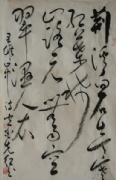 荆溪白石出天寒
红葉稀
山路元无雨空
翠濕人衣